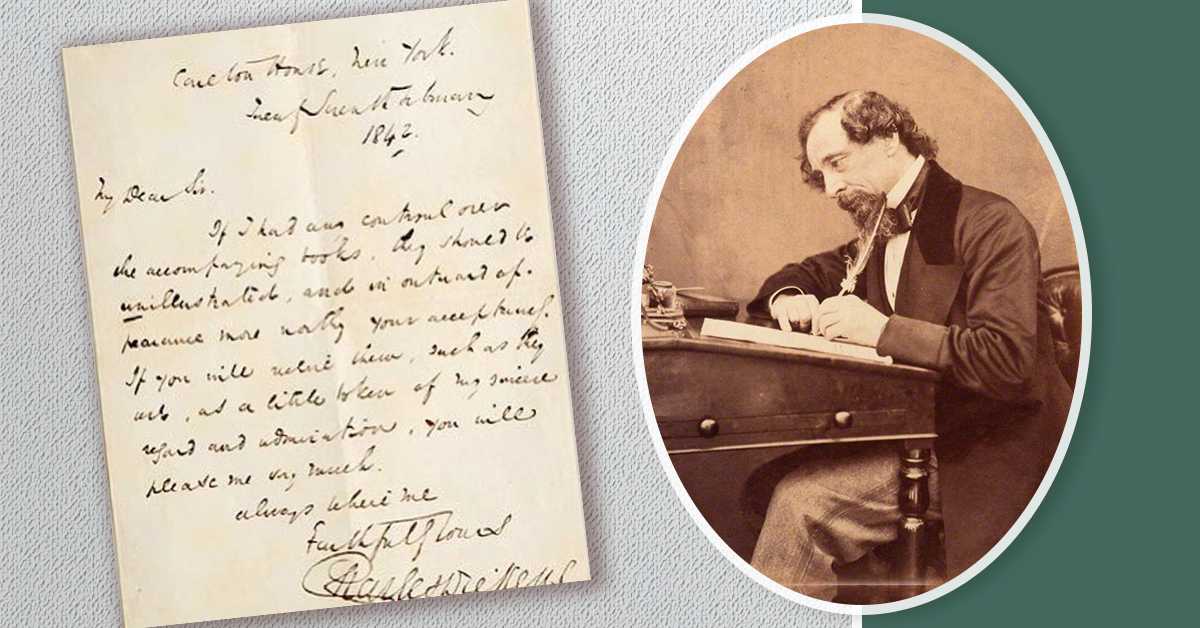 Carlton House, New York.
Twenty Seventh February
1842.
My Dear Sir.
If I had any control over
the accompanying books, they should be
unillustrated, and in outward ap-
pearance more worthy your acceptance.
If you will value them, such as they
are, as a little token of my sincere
regard and admiration, you will
please me very much.
always believe me
Faithfully Yours
Charles Dickens